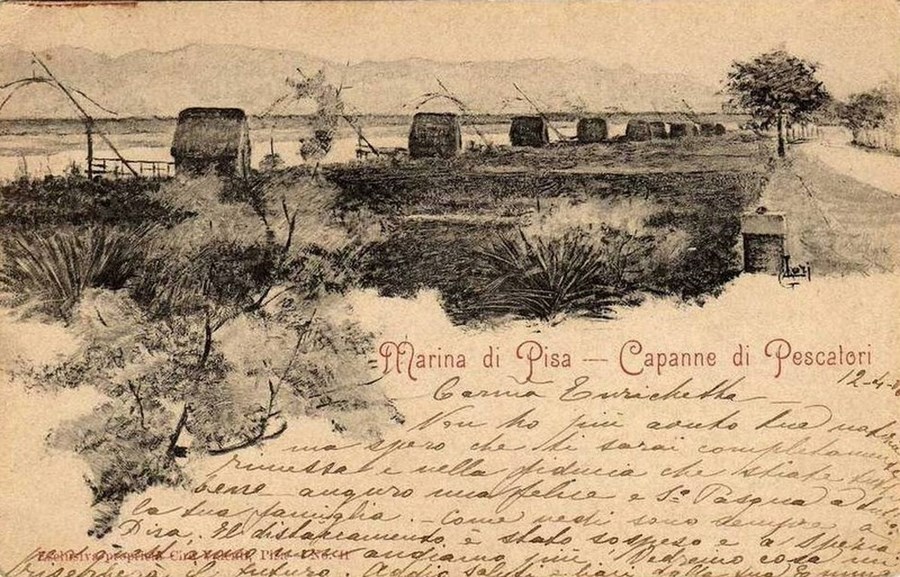 Marina di Pisa — Capanne di Pescatori
12-4-
Carma Enrichetta —
Non ho più avuto tue notizie
ma spero che ti sarai completamente
rimessa e nella fiducia che stiate tutti
bene auguro una felice e Sª Pasqua a tutta
la sua famiglia. — Come vedi sono sempre a
Pisa. Il distaccamento è stato sospeso e a Spezia
non andiamo più. Vedremo cosa
il futuro. Addio saluti
Esclusiva proprietà Ciro Valenti, Pisa - No. 11